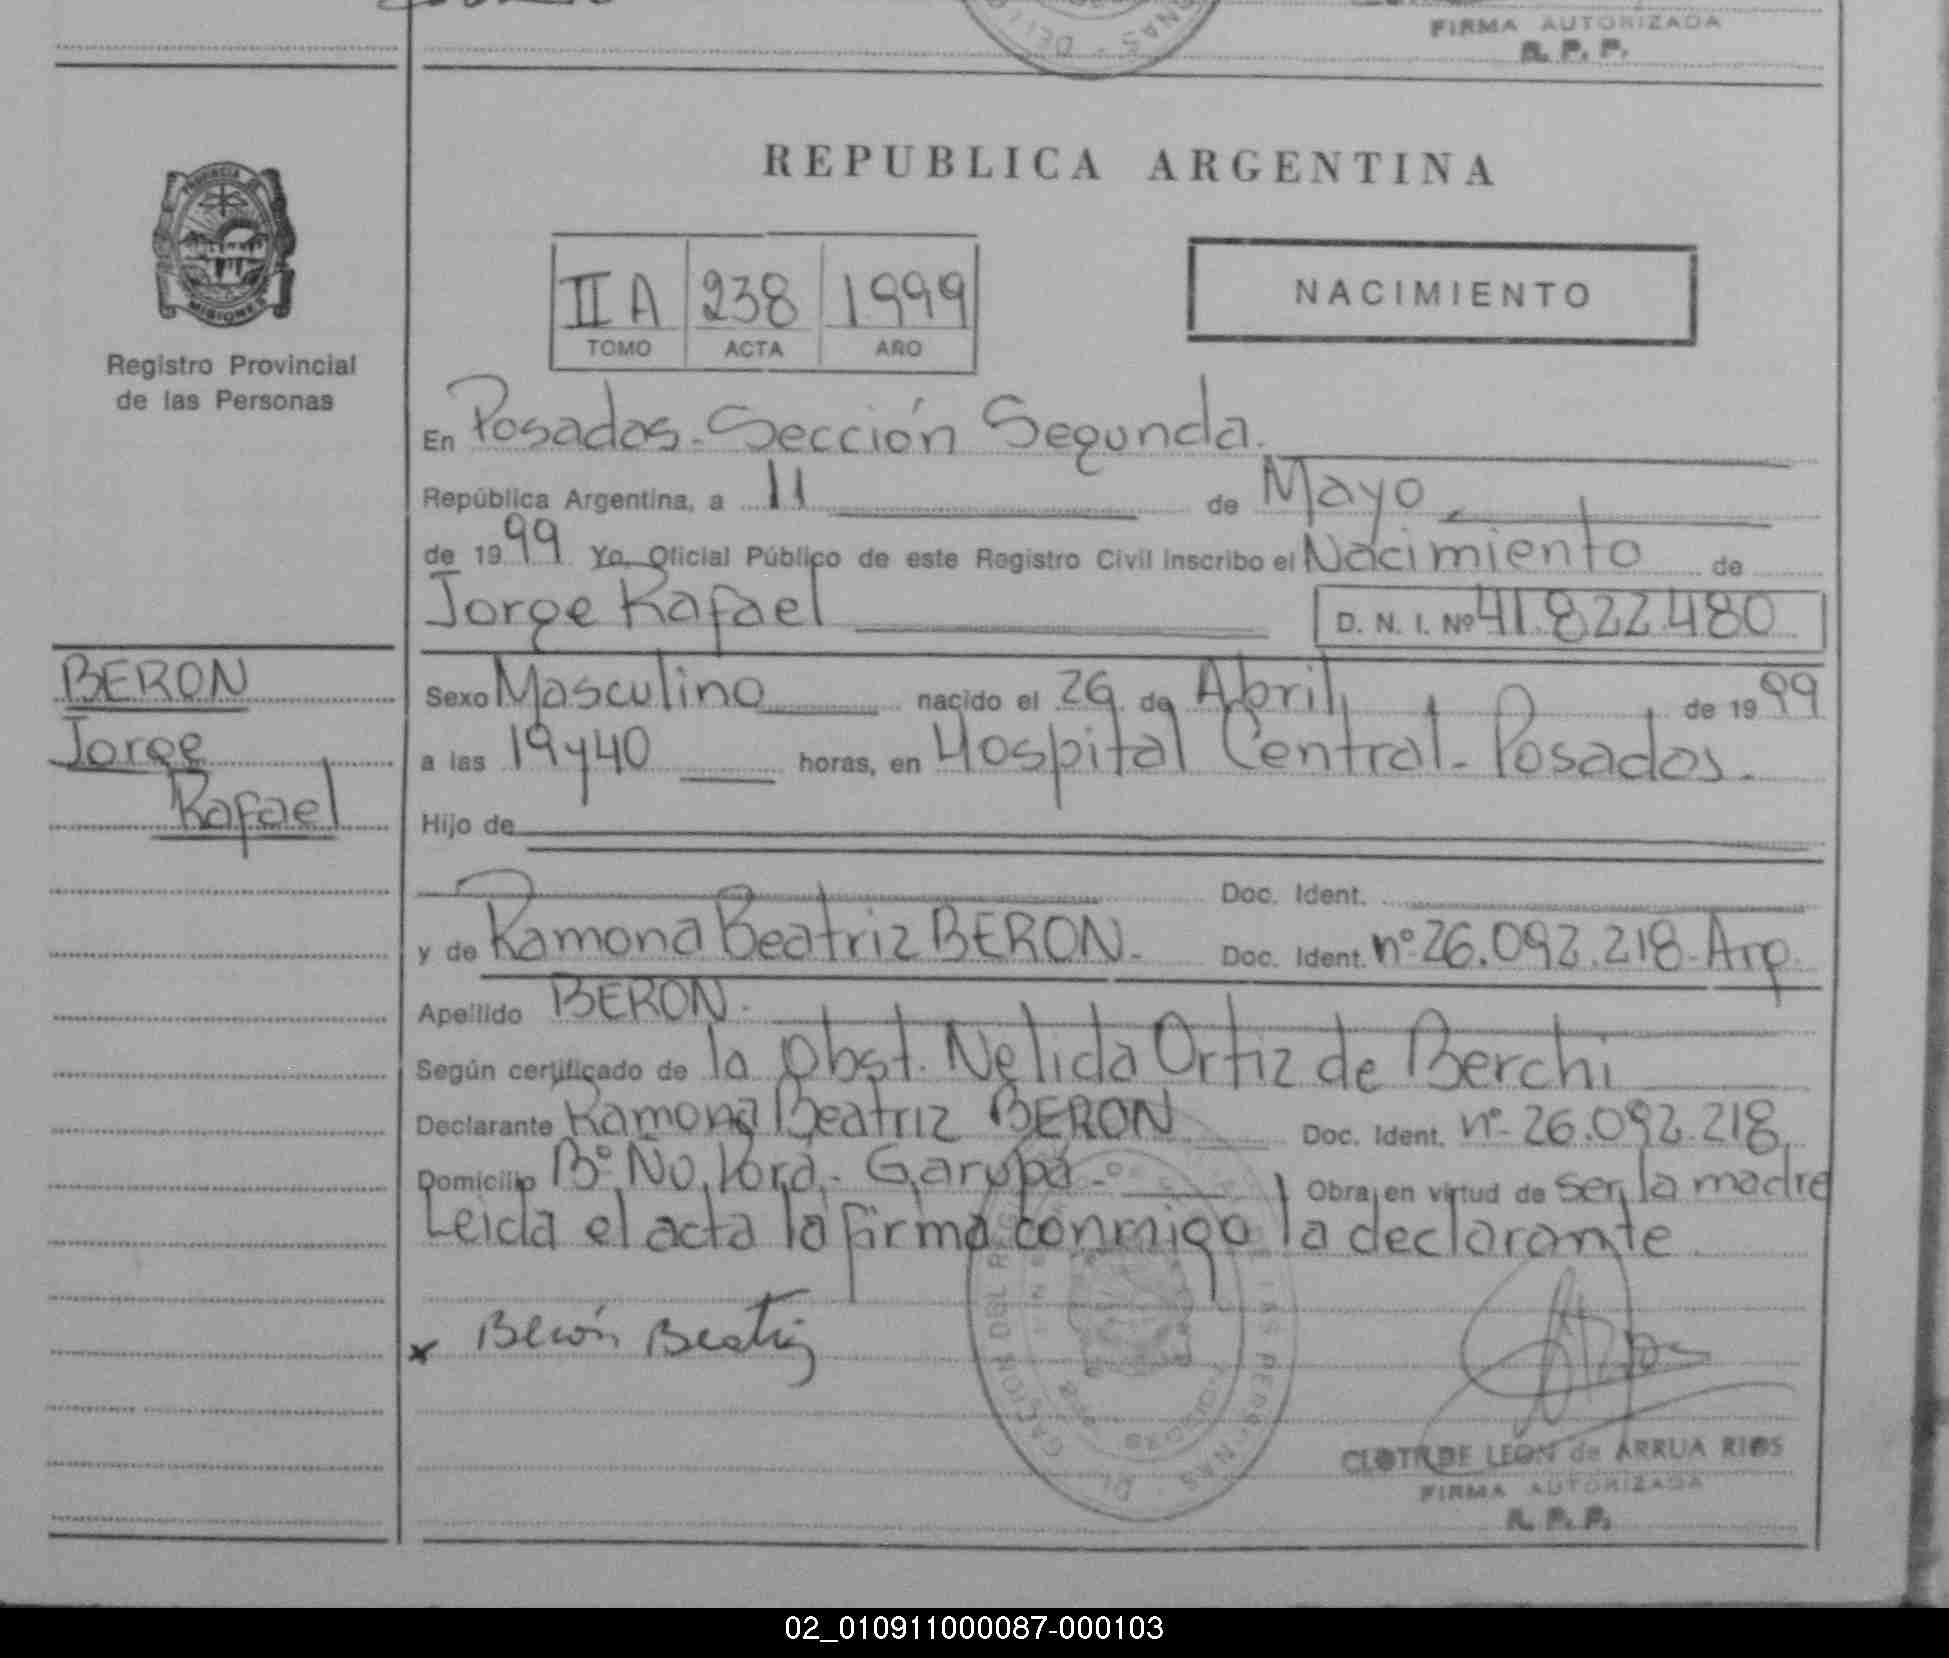 FIRMA AUTORIZADA
R. P. P.
REPUBLICA ARGENTINA
PROVINCIA DE
MISIONES
Registro Provincial
de las Personas
II A 238 1999
TOMO ACTA AÑO
NACIMIENTO
En Posadas - Sección Segunda.
República Argentina, a 11 de Mayo
de 1999 Yo, Oficial Público de este Registro Civil inscribo el Nacimiento de
Jorge Rafael D. N. I. Nº 41.822.480
BERON
Jorge
Rafael
Sexo Masculino nacido el 26 de Abril de 1999
a las 19 y 40 horas, en Hospital Central - Posadas.
Hijo de
Doc. Ident.
y de Ramona Beatriz BERON. Doc. Ident. nº 26.092.218 - Arg.
Apellido BERON.
Según certificado de la Obst. Nelida Ortiz de Berchi
Declarante Ramona Beatriz BERON Doc. Ident. nº 26.092.218
Domicilio Bº Ño Porá - Garupá - Obra en virtud de ser la madre
Leida el acta la firma conmigo la declarante
x Berón Beatriz
CLOTILDE LEON de ARRUA RIOS
FIRMA AUTORIZADA
R. P. P.
02_010911000087-000103